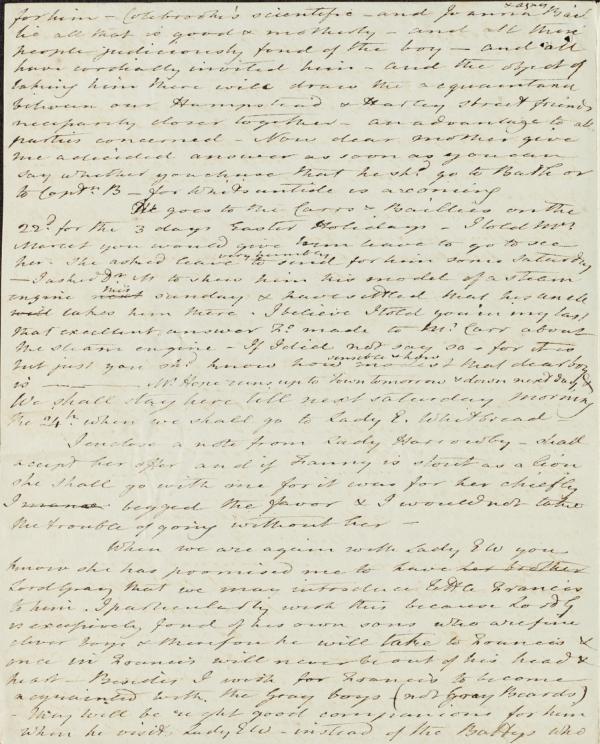 & Agnes
for him – Colebrooke's scientific – and Joanna Bail
lie all that is good & motherly – and all these
people judiciously fond of the boy – and all
have cordially invited him – and the object of
taking him there will draw the acquaintance
between our Hampstead & Harley street friends
necessarily closer together – an advantage to all
parties concerned – Now dear mother give
me a decided answer as soon as you can
say whether you chuse that he shd. go to Bath or
to Captn. B – for Whitsuntide is a coming
He goes to the Carrs & Baillies on the
22d. for the 3 days Easter Holidays – I told Mrs
Marcet you would give him leave to go to see
her. She asked leave very humbly to send for him some Saturday
– I asked Dr M to shew him his model of a steam
engine next this sunday & have settled that his uncle
will takes him there. I believe I told you in my last
that excellent answer Fs. made to Mr. Carr about
the steam engine – If I did not say so – for it is
but just you shd. know how sensible & how modest that dear boy
is – Wm. Hope runs up to Town tomorrow & down next day &
We shall stay here till next saturday morning
the 24th. when we shall go to Lady E. Whitbread –
I enclose a note from Lady Harrowby – I shall
accept her offer and if Fanny is stout as a lion
she shall go with me for it was for her chiefly
I begged the favor & I would not take
the trouble of going without her –
When we are again with Lady EW you
know she has promised me to have her brother
Lord Gray that we may introduce little Francis
to him. I particularly wish this because Lord G
is excessively fond of his own sons who are fine
clever boys & therefore he will take to Francis &
once in Francis will never be out of his head &
heart – Besides I wish for Francis to become
acquainted with the Gray boys – (not Gray Beards)
– They will be right good companions for him
when he visits Lady EW – instead of the Battys who